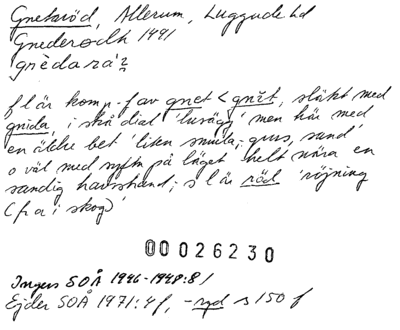 Gnetaröd, Allerum, Luggude hd
Gnederodh 1491
gnèdará?
f l är komp-f av gnet < gnēt, släkt med
gnida, i skå dial 'luvägg' men här med
en äldre bet 'liten smula, grus, sand'
o väl med syftn på läget helt nära en
sandig havsstrand; s l är röd 'röjning
(fr a i skog)'
00026230
Ingers SOÅ 1946-1948:81
Ejder SOÅ 1971:4f, -ryd s 150 f